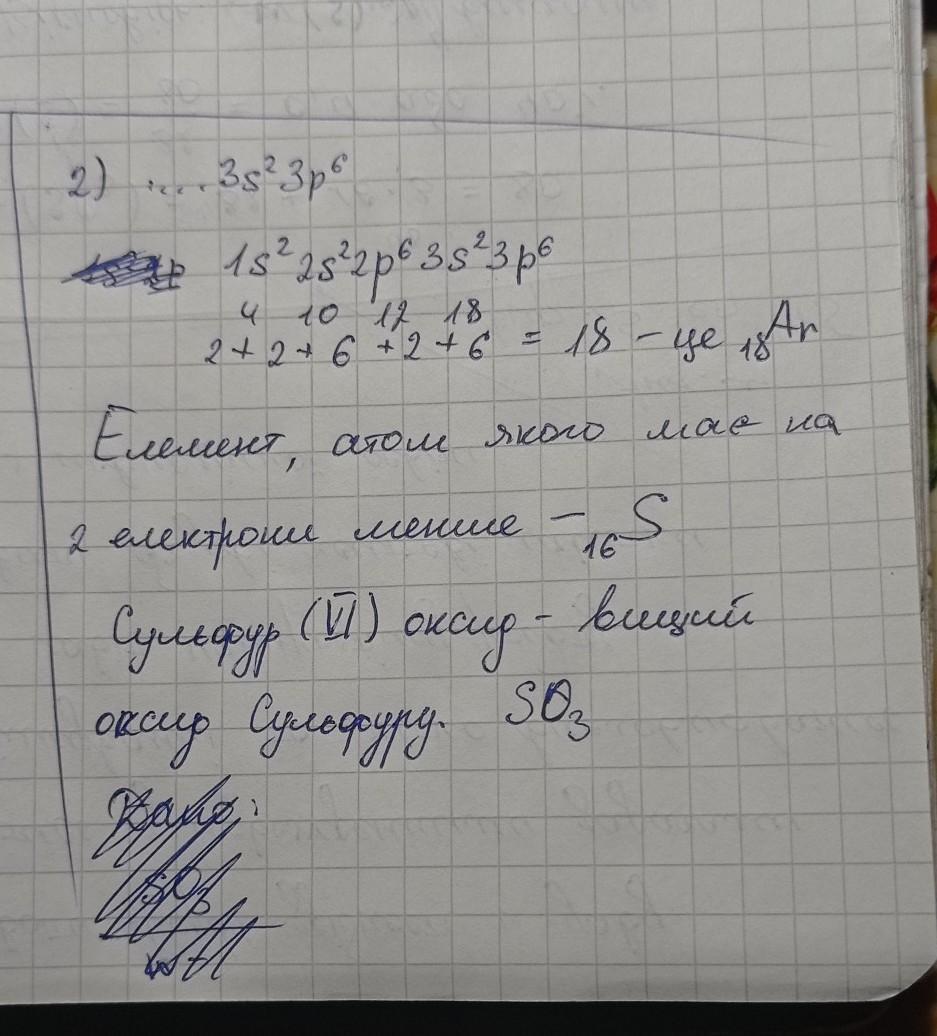 2) .... 3s² 3p⁶
1s² 2s² 2p⁶ 3s² 3p⁶
4 10 12 18
2 + 2 + 6 + 2 + 6 = 18 - це ₁₈Ar
Елемент, атом якого має на
2 електрони менше - ₁₆S
Сульфур (VI) оксид - вищий
оксид Сульфуру. SO₃
Дано:
SO₃